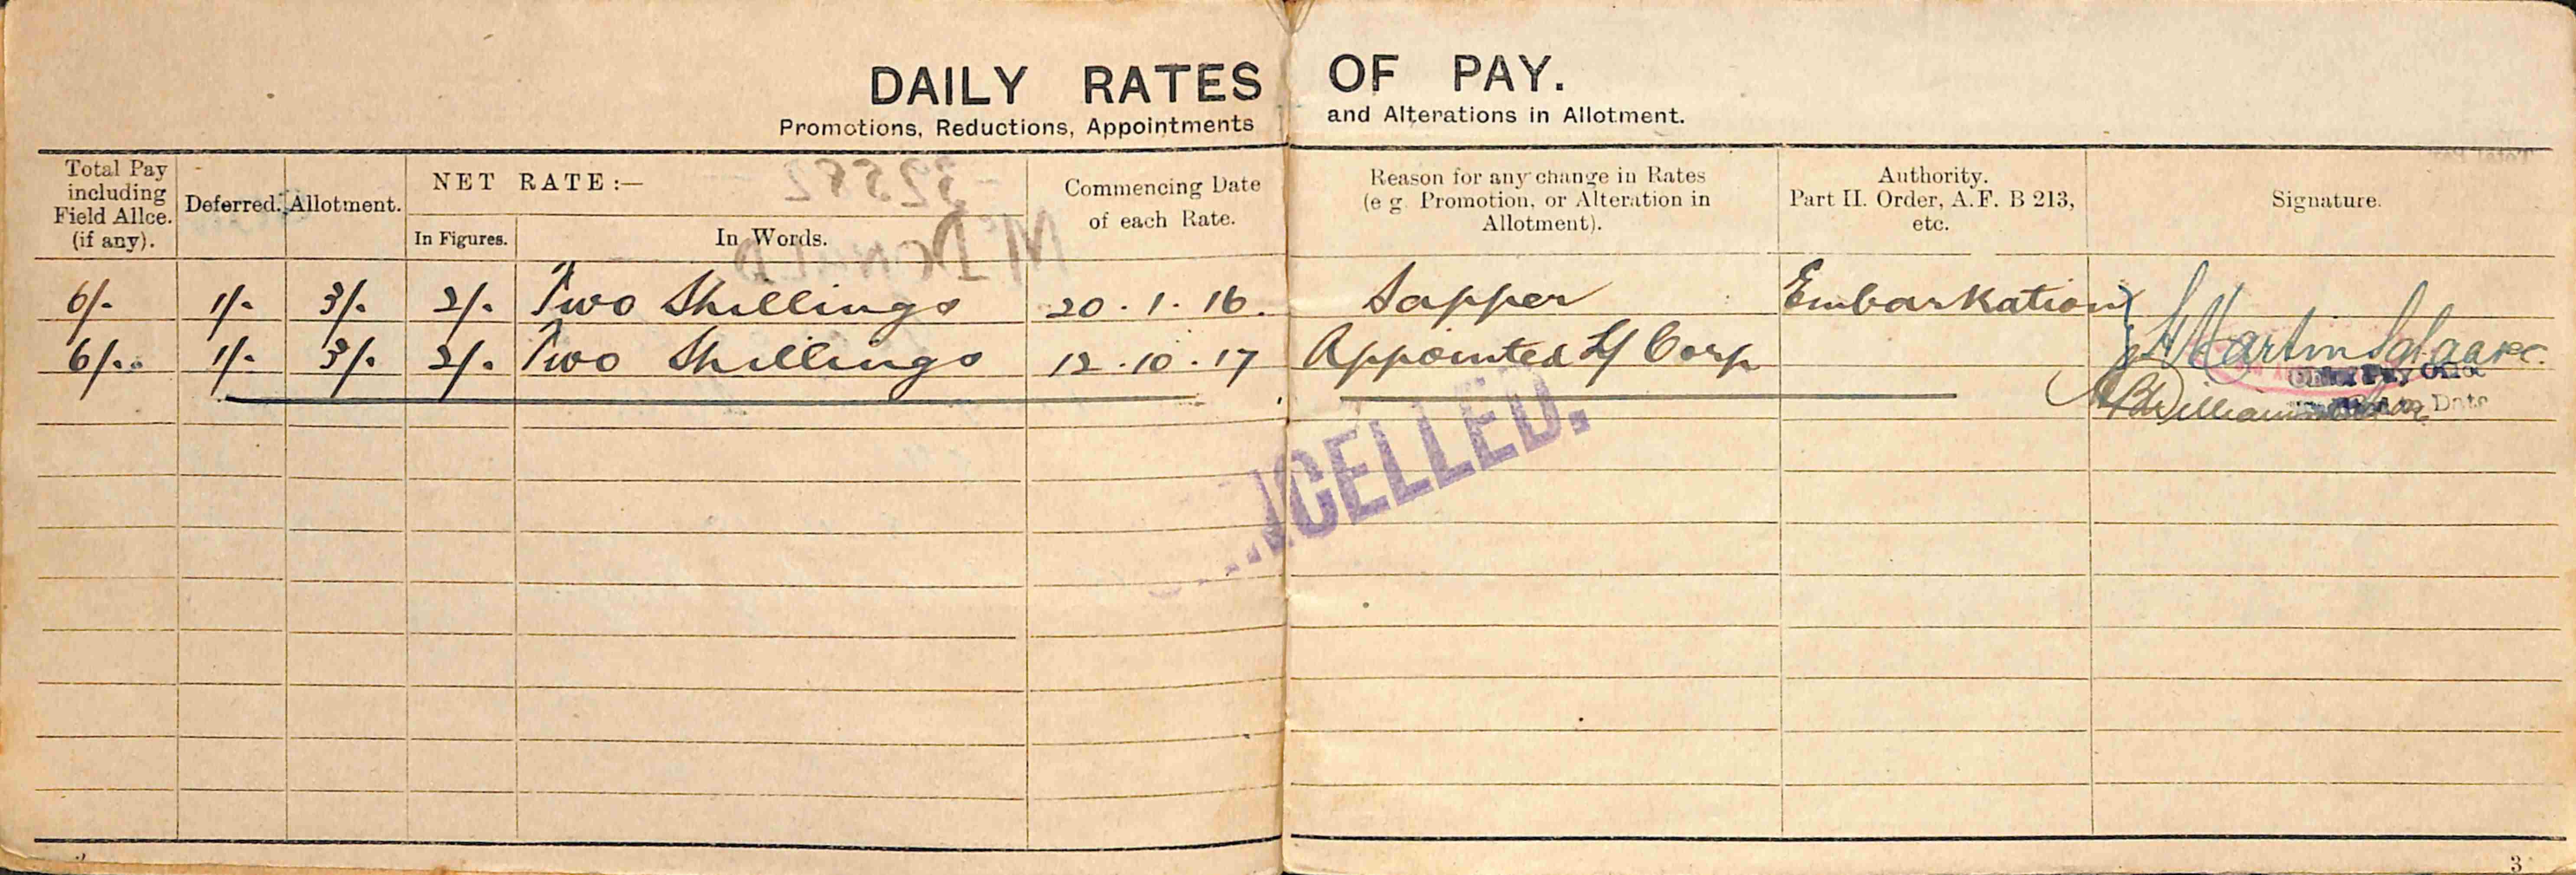 DAILY RATES OF PAY.
Promotions, Reductions, Appointments and Alterations in Allotment.
Total Pay including Field Allce. (if any).
Deferred.
Allotment.
NET RATE:—
In Figures.
In Words.
Commencing Date of each Rate.
Reason for any change in Rates (e g. Promotion, or Alteration in Allotment).
Authority. Part II. Order, A.F. B 213, etc.
Signature.
32582
McDONALD
6/- 1/- 3/- 2/- Two Shillings 20.1.16. Sapper Embarkation
6/- 1/- 3/- 2/- Two Shillings 12.10.17 Appointed L/Corp
Martin
Williams
NCELLED.
3